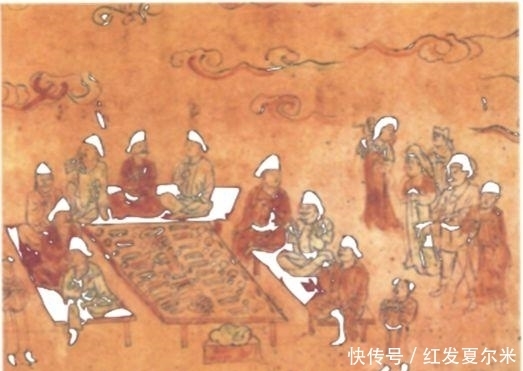 快传号 / 红发夏尔米